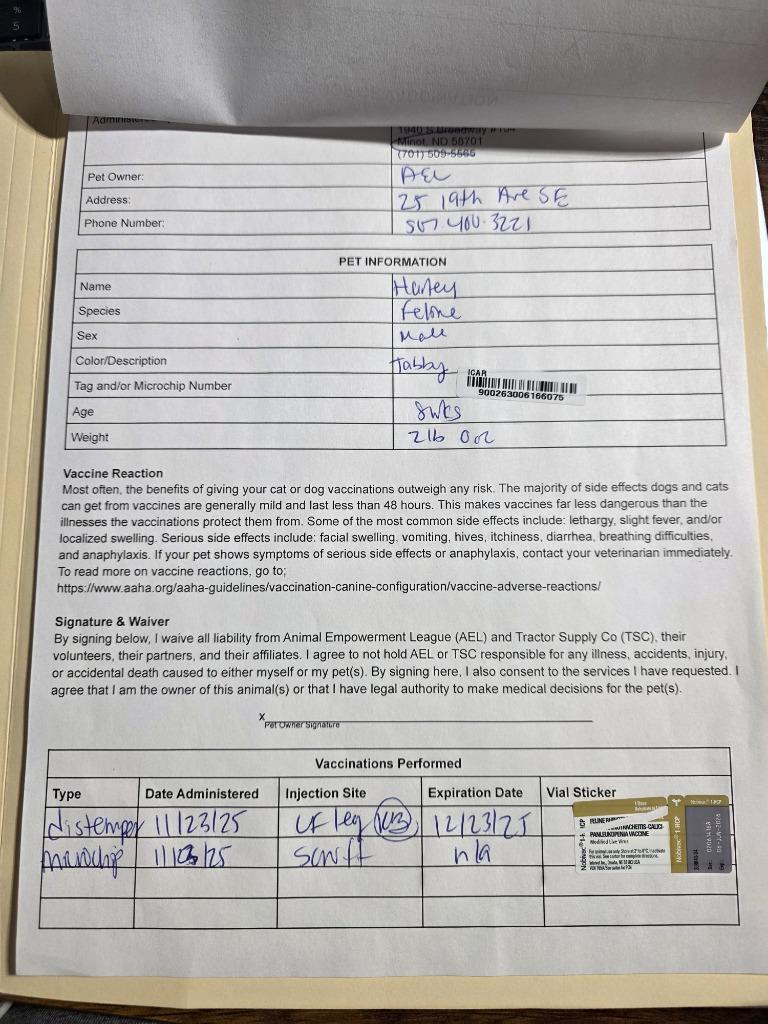 Administered
1940 S Broadway #104
Minot, ND 58701
(701) 509-5565
Pet Owner: AEL
Address: 25 19th Ave SE
Phone Number: 507.400.3221
PET INFORMATION
Name Harley
Species Feline
Sex Male
Color/Description Tabby
ICAR
Tag and/or Microchip Number 900263006166075
Age 8wks
Weight 2lb 0oz
Vaccine Reaction
Most often, the benefits of giving your cat or dog vaccinations outweigh any risk. The majority of side effects dogs and cats
can get from vaccines are generally mild and last less than 48 hours. This makes vaccines far less dangerous than the
illnesses the vaccinations protect them from. Some of the most common side effects include: lethargy, slight fever, and/or
localized swelling. Serious side effects include: facial swelling, vomiting, hives, itchiness, diarrhea, breathing difficulties,
and anaphylaxis. If your pet shows symptoms of serious side effects or anaphylaxis, contact your veterinarian immediately.
To read more on vaccine reactions, go to;
https://www.aaha.org/aaha-guidelines/vaccination-canine-configuration/vaccine-adverse-reactions/
Signature & Waiver
By signing below, I waive all liability from Animal Empowerment League (AEL) and Tractor Supply Co (TSC), their
volunteers, their partners, and their affiliates. I agree to not hold AEL or TSC responsible for any illness, accidents, injury,
or accidental death caused to either myself or my pet(s). By signing here, I also consent to the services I have requested. I
agree that I am the owner of this animal(s) or that I have legal authority to make medical decisions for the pet(s).
X
Pet Owner Signature
Vaccinations Performed
Type Date Administered Injection Site Expiration Date Vial Sticker
distemper 11/23/25 LF leg 12/23/25
microchip 11/23/25 scruff n/a
Nobivac® 1-HCP
FELINE
PANLEUKOPENIA VACCINE
Modified Live Virus
Nobivac® 1-HCP